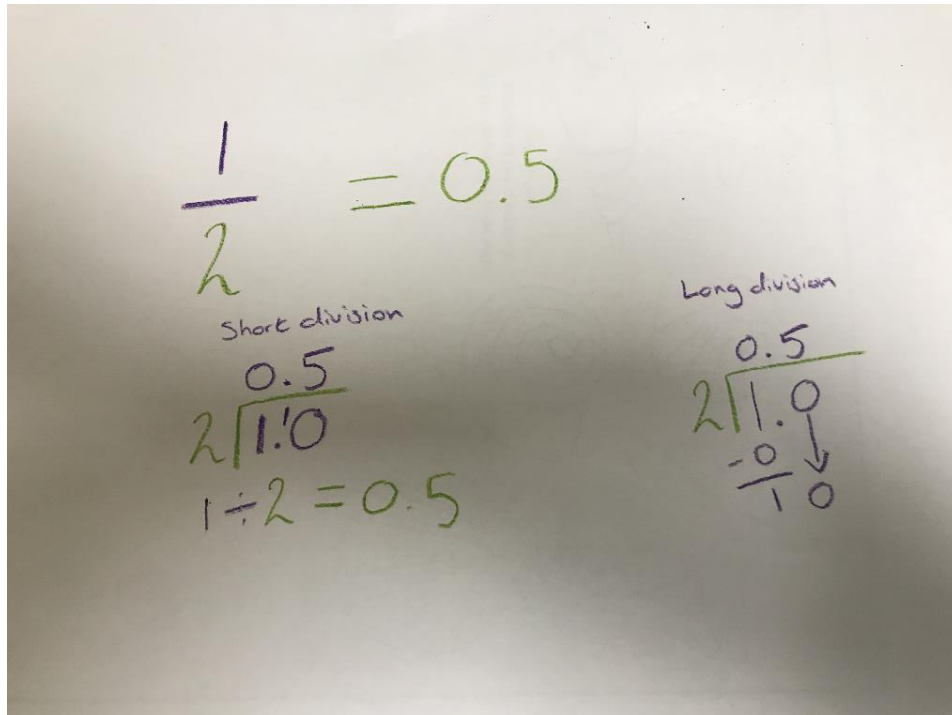 1
2
= 0.5
Short division
0.5
2 1.10
1 ÷ 2 = 0.5
Long division
0.5
2 1.0
-0
1 0